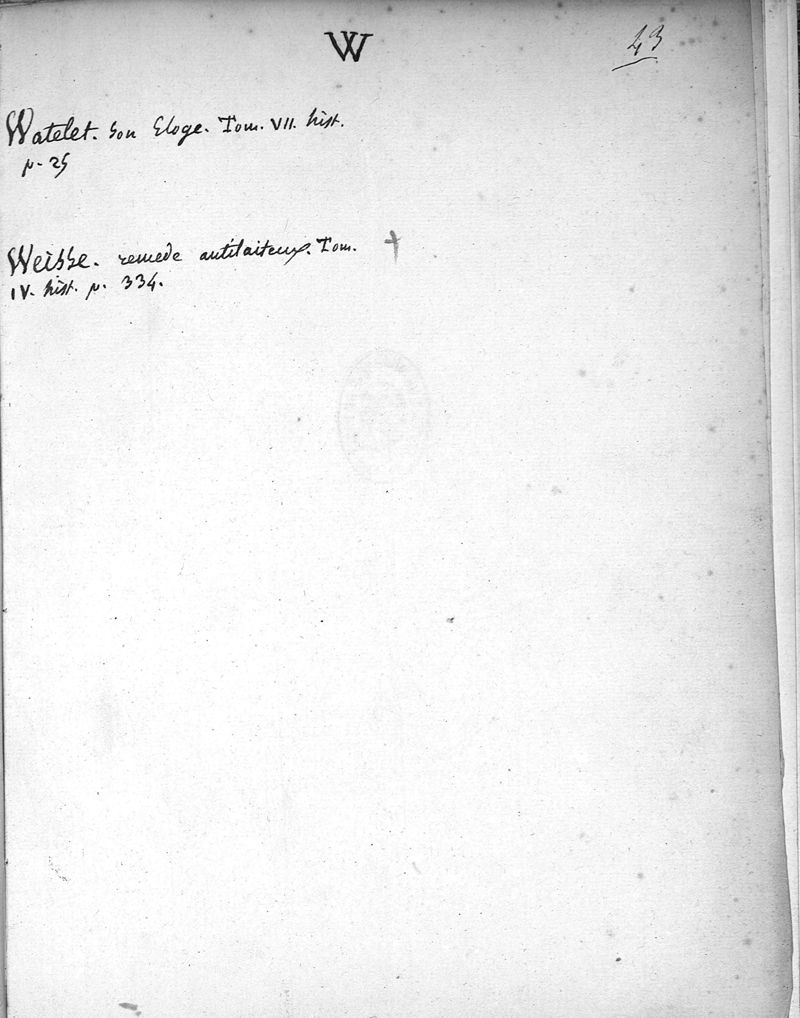 W
43
Watelet. son Eloge. Tom. VII. hist.
p. 25
Weisse. remede antilaiteux. Tom. †
IV. hist. p. 334.